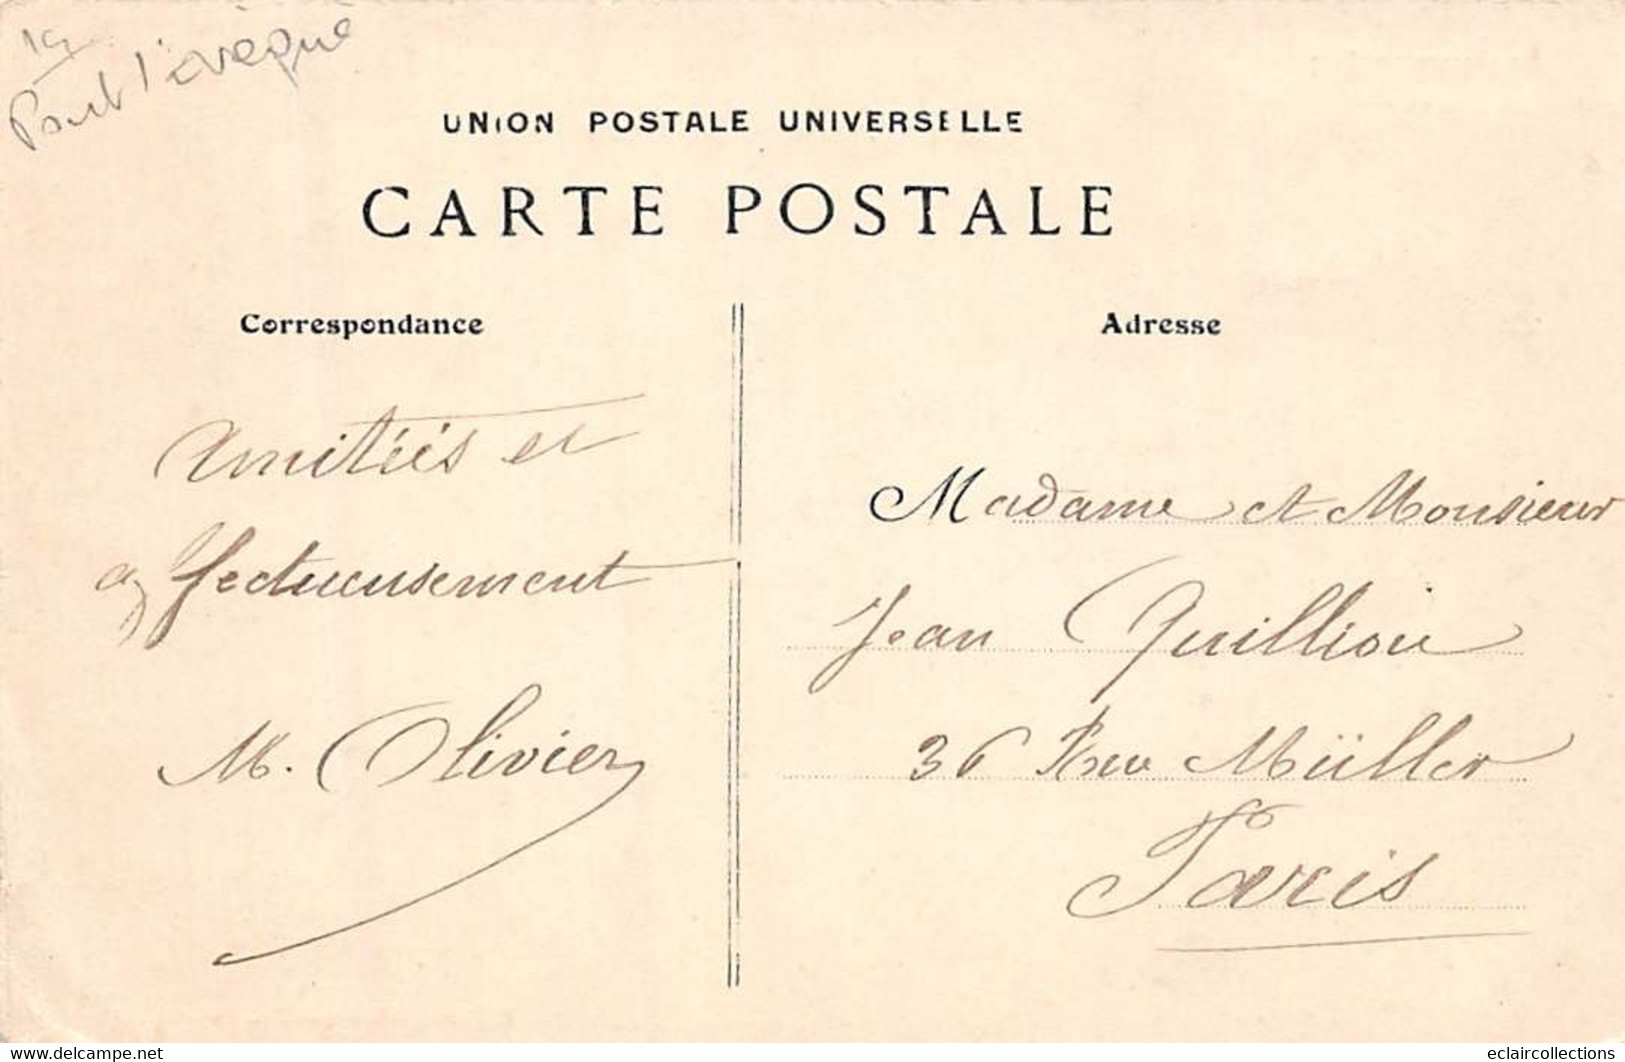 19
Pont l'évèque
UNION POSTALE UNIVERSELLE
CARTE POSTALE
Correspondance
Adresse
Amitiés et
affectueusement
M. Olivier
Madame et Monsieur
Jean Quilliou
36 Rue Müller
Paris
www.delcampe.net
eclaircollections